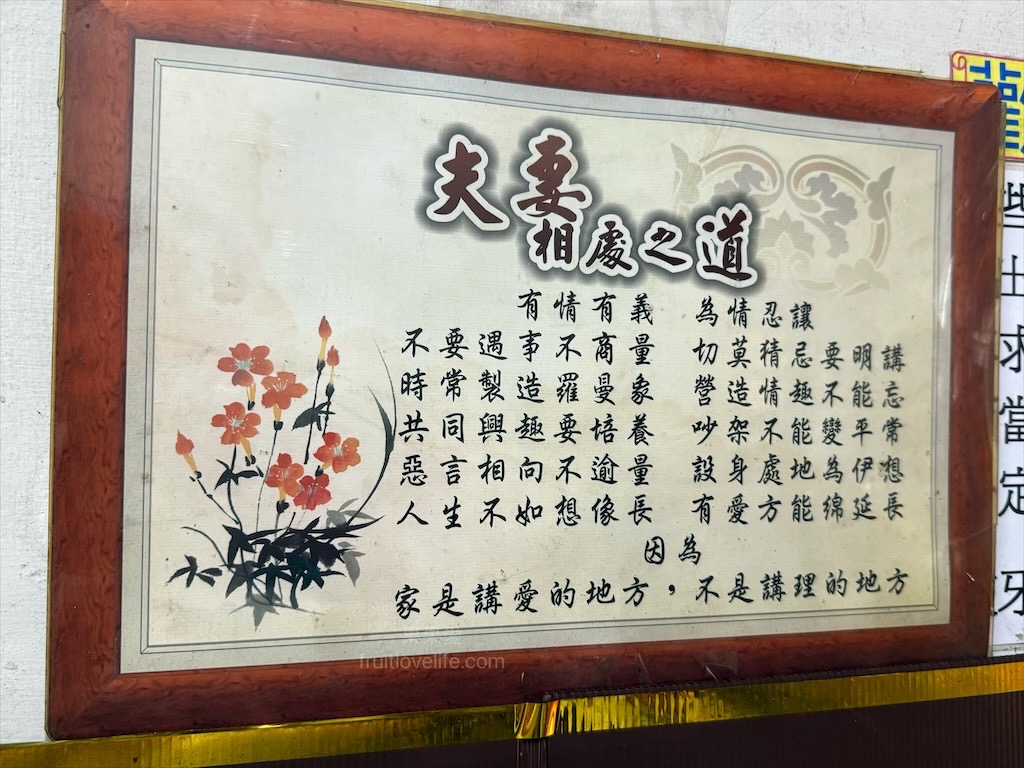 夫妻
相處之道
有情有義 為情忍讓
不要遇事不商量 切莫猜忌要明講
時常製造羅曼象 營造情趣不能忘
共同興趣要培養 吵架不能變平常
惡言相向不逾量 設身處地為伊想
人生不如想像長 有愛方能綿延長
因為
家是講愛的地方，不是講理的地方
fruitlovelife.com
些
出
求
當
定
牙